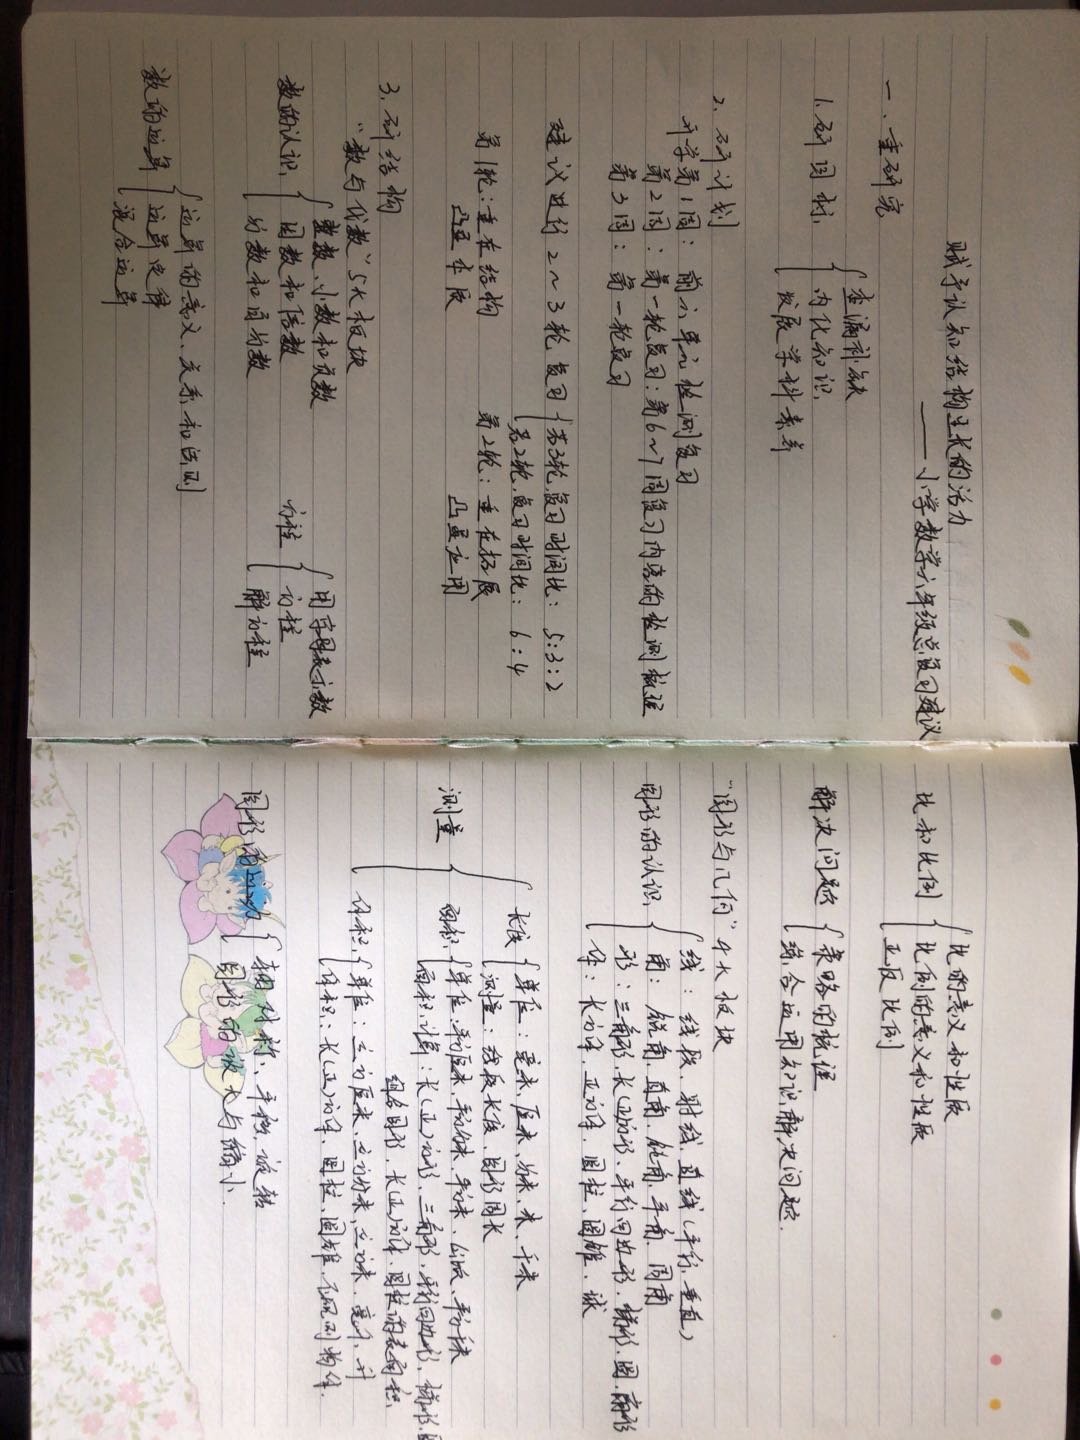 赋予认知结构生长的活力
——小学数学六年级总复习建议
一、重研究
1. 研目标
查漏补缺
内化知识
发展学科素养
2. 研计划
开学第1周：前八单元检测复习
第2周：第一轮复习：第6~7周复习内容的检测梳理
第3周：第一轮复习
建议进行2~3轮复习
若3轮，复习时间比：5:3:2
若2轮，复习时间比：6:4
第1轮：重在结构
凸显本质
第2轮：重在拓展
凸显应用
3. 研结构
“数与代数”5大板块
数的认识
整数、小数和负数
因数和倍数
分数和百分数
方程
用字母表示数
方程
解方程
数的运算
运算的意义、关系和法则
运算定律
混合运算
比和比例
比的意义和性质
比例的意义和性质
正反比例
解决问题
策略的梳理
综合运用知识解决问题.
“图形与几何”4大板块
图形的认识
线：线段、射线、直线（平行、垂直）
角：锐角、直角、钝角、平角、周角
形：三角形、长（正）方形、平行四边形、梯形、圆、扇形
体：长方体、正方体、圆柱、圆锥、球
测量
长度
单位：毫米、厘米、分米、米、千米
测量：线段长度、图形周长
面积
单位：平方厘米、平方分米、平方米、公顷、平方千米
面积计算：长（正）方形、三角形、平行四边形、梯形、圆
组合图形、长（正）方体、圆柱的表面积.
体积
单位：立方厘米、立方分米、立方米、毫升、升
体积：长（正）方体、圆柱、圆锥、不规则物体.
图形的运动
轴对称、平移、旋转
图形的放大与缩小.